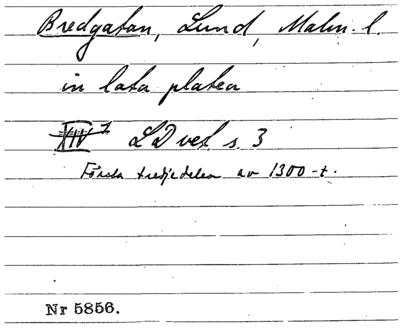 Bredgatan, Lund, Malm. l.
in lata platea
XIV 1 LD vet s. 3
Första tredjedelen av 1300-t.
Nr 5856.